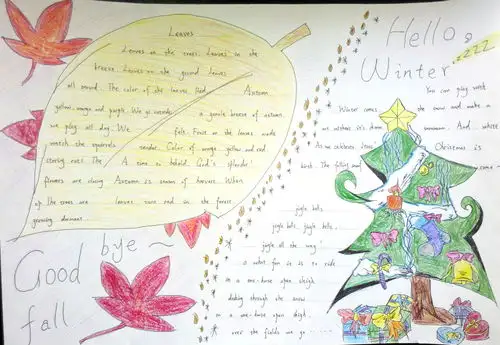 Leaves
Leaves on the trees. Leaves in the
breeze. Leaves on the ground. Leaves
all around. The color of the leaves. Red
Autumn
yellow, orange and purple. We go outside
a gentle breeze of autumn.
we play all day. We
felt. Fruit on the leaves made
watch the squirrels
Color of orange, yellow and red.
The
A time to behold God's splendor!
flowers are
Autumn is season of harvest. When
the trees are
leaves turn red in the forest
growing dormant.
Good bye~
fall
Hello,
Winter
zzzz
You can play with
Winter comes
the snow and make a
snowman. And
As we celebrate Jesus'
Christmas is
birth. The
jingle bells
jingle bells, jingle bells,
jingle all the way!
what fun it is to ride
in a one-horse open sleigh
dashing through the snow
in a one-horse open sleigh
over the fields we go